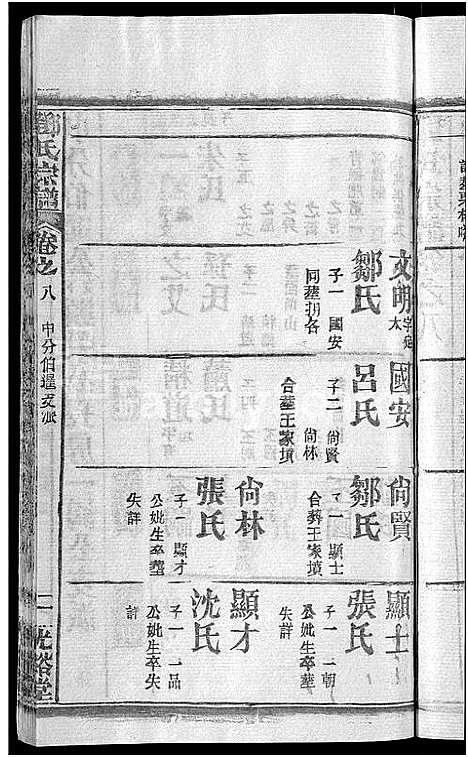 鄧氏宗譜
卷之八
中分伯暹支派
二
光裕堂
文明
鄒氏
子一 國安
國安
呂氏
子二 尙賢
尙林
合塟王家墳
尙賢
鄒氏
子一 顯士
合塟王家墳
尙林
張氏
子一 顯才
公妣生卒塟
失詳
顯士
張氏
子一 一朝
公妣生卒塟
失詳
顯才
沈氏
子一 一品
公妣生卒失
詳